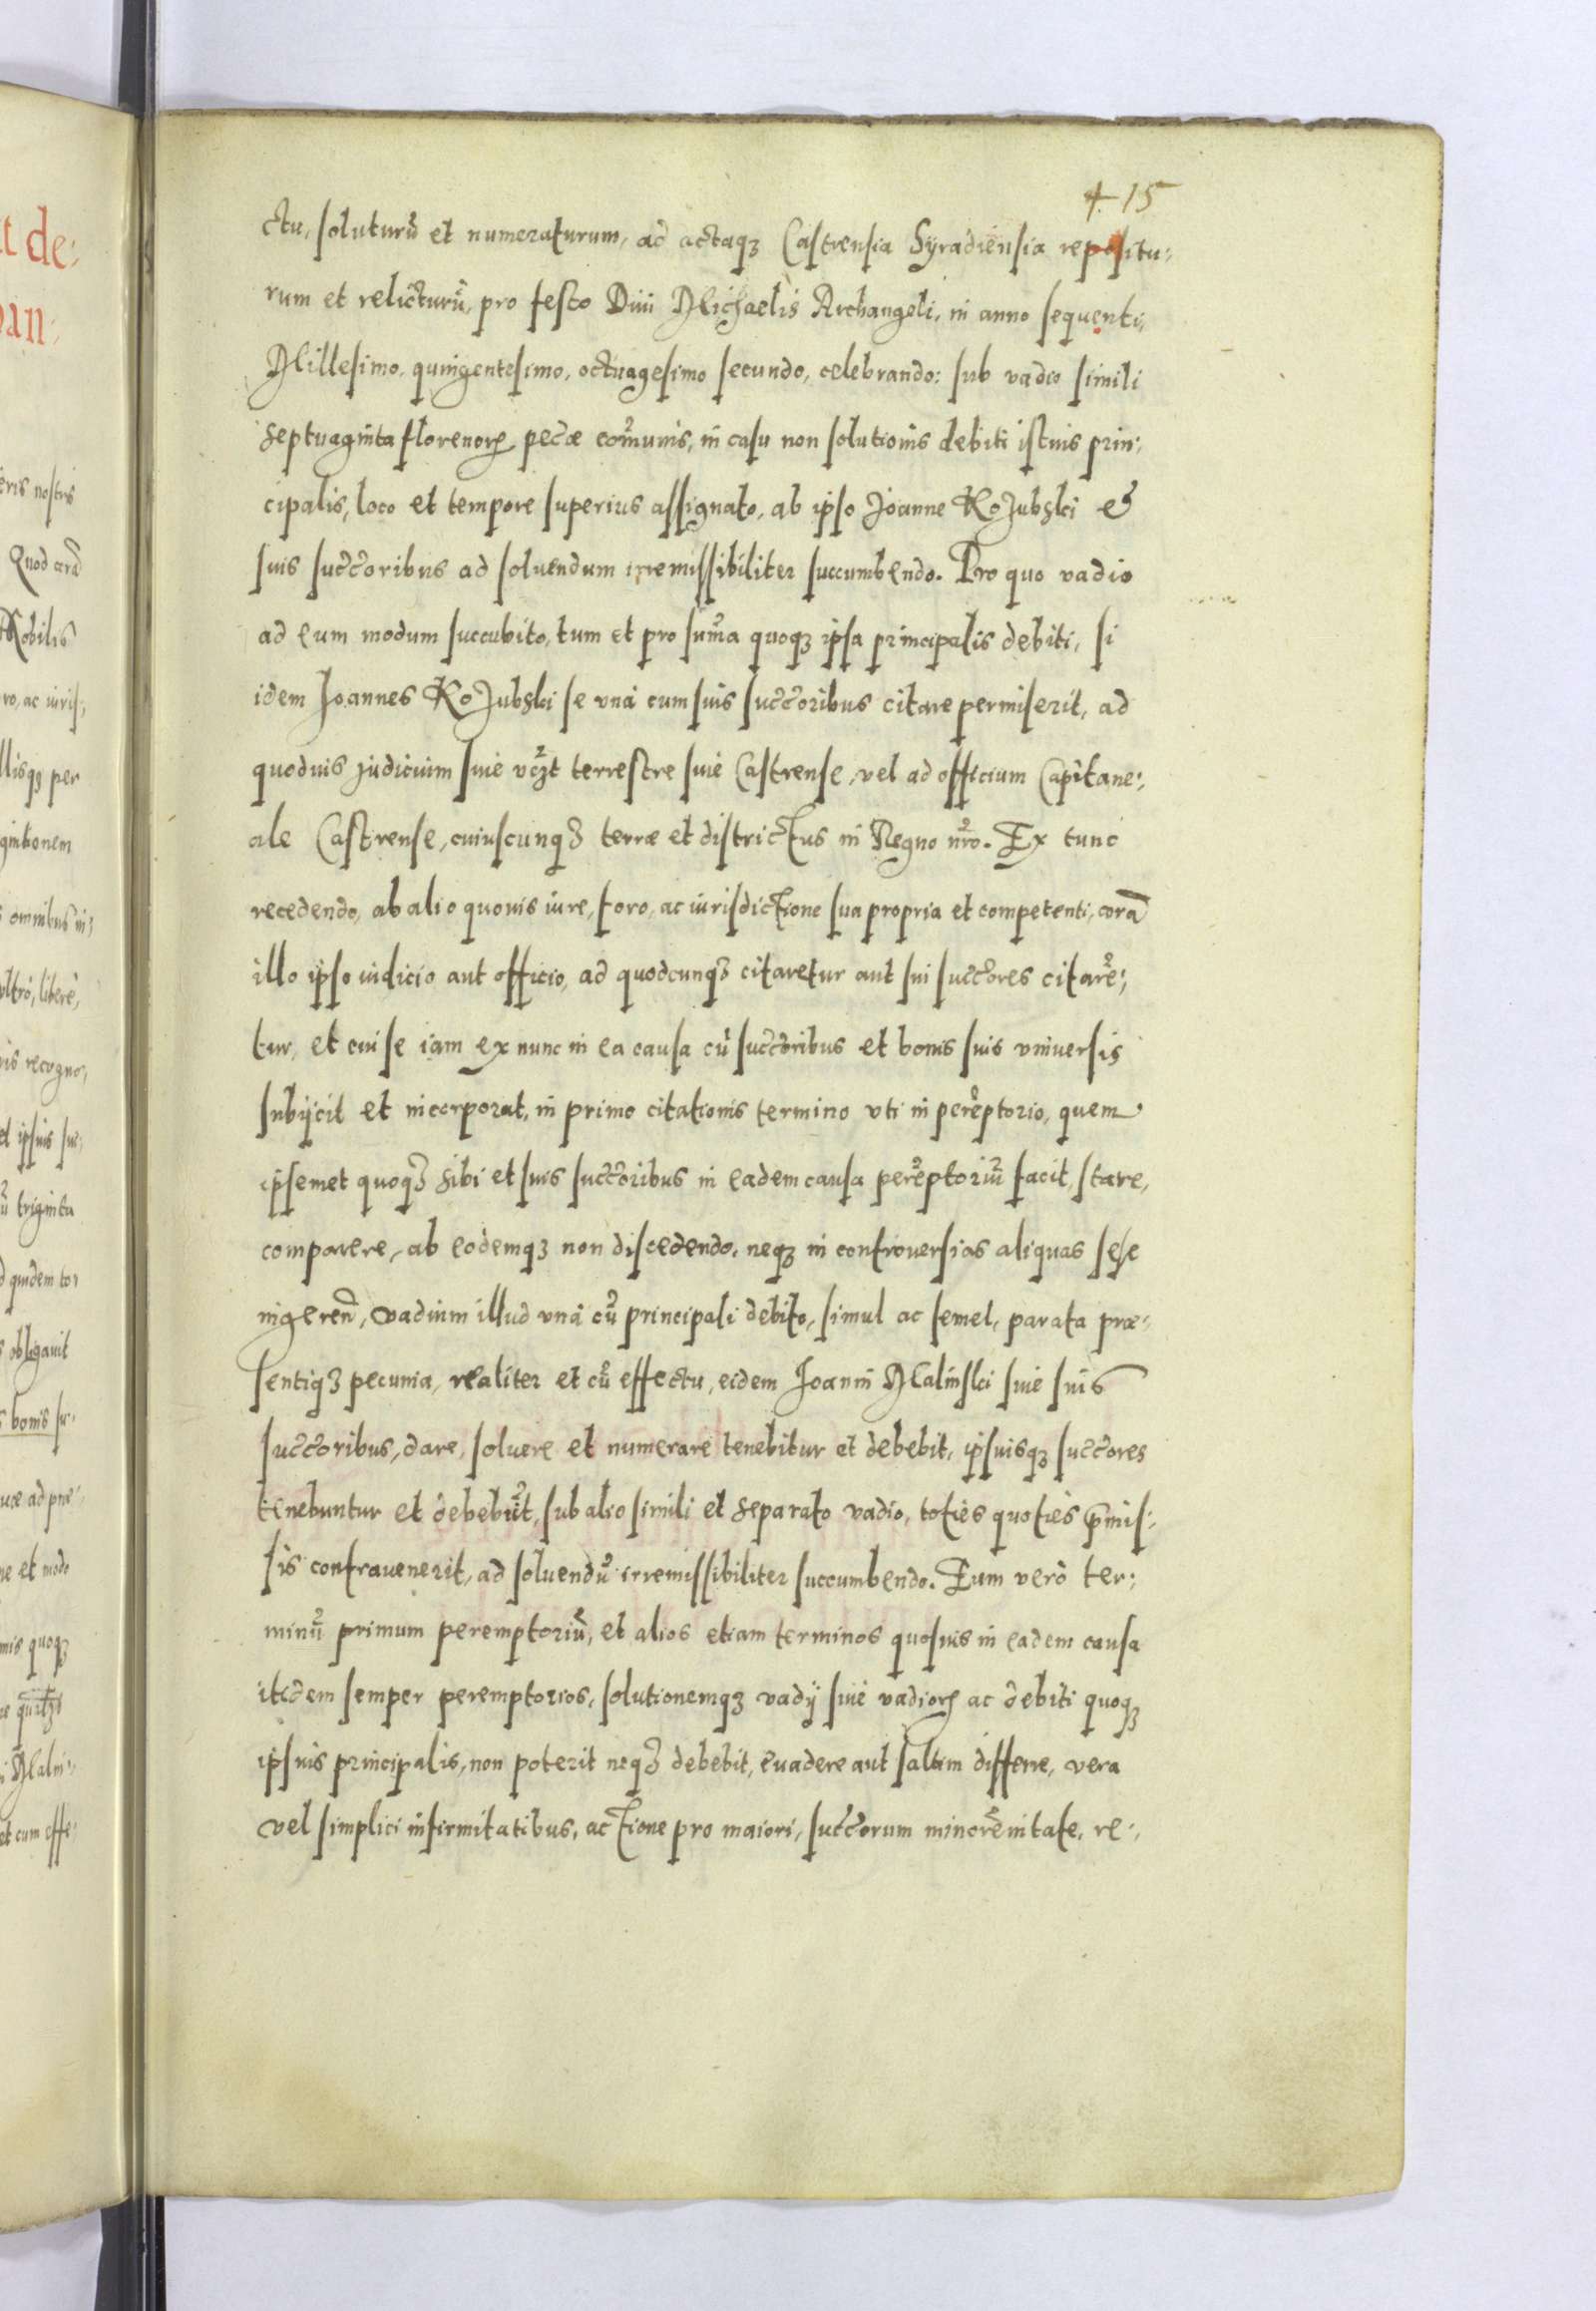 4. 15
ctu, soluturũ et numeraturum, ad actaqȝ Castrensia Syradiensia repositu:
rum et relicturũ, pro festo Diui Michaelis Archangeli, in anno sequenti,
Millesimo, quingentesimo, octuagesimo secundo, celebrando: sub vadio simili
septuaginta florenorꝝ pecũæ com̃unis, in casu non solutionis debiti istius prin:
cipalis, loco et tempore superius assignato, ab ipso Joanne Kozubski et
suis succ̃oribus ad soluendum irremissibiliter succumbendo. Pro quo vadio
ad eum modum succubito, tum et pro sum̃a quoqȝ ipsa principalis debiti, si
idem Joannes Kozubski se vnà cum suis succ̃oribus citare permiserit, ad
quoduis judicium siue vcꝫt terrestre siue Castrense, vel ad officium Capitane:
ale Castrense, cuiuscunqȝ terræ et districtus in Regno nr̃o. Ex tunc
recedendo, ab alio quouis iure, foro, ac iurisdictione sua propria et competenti, corã
illo ipso iudicio aut officio, ad quodcunqȝ citaretur aut sui succ̃ores citarẽ:
tur, et cui se iam ex nunc in ea causa cũ succ̃oribus et bonis suis vniuersis
subijcit et incorporat, in primo citationis termino vti in perẽptorio, quem
ipsemet quoqȝ sibi et suis succ̃oribus in eadem causa perẽptoriũ facit, stare,
comparere, ab eodemqȝ non discedendo, neqȝ in controuersias aliquas sese
ingeren̄, vadium illud vnà cũ principali debito, simul ac semel, parata præ:
sentiqȝ pecunia, realiter et cũ effectu, eidem Joanni Malinski siue suis
succ̃oribus, dare, soluere et numerare tenebitur et debebit, ipsiusqȝ succ̃ores
tenebuntur et debebũt, sub alio simili et separato vadio, toties quoties p̃mis:
sis contrauenerit, ad soluendũ irremissibiliter succumbendo. Eum verò ter:
minũ primum peremptoriũ, et alios etiam terminos quosuis in eadem causa
itidem semper peremptorios, solutionemqȝ vadij siue vadiorꝝ ac debiti quoqȝ
ipsius principalis, non poterit neqȝ debebit, euadere aut saltim differre, vera
vel simplici infirmitatibus, actione pro maiori, succ̃orum minorẽnitate, re: